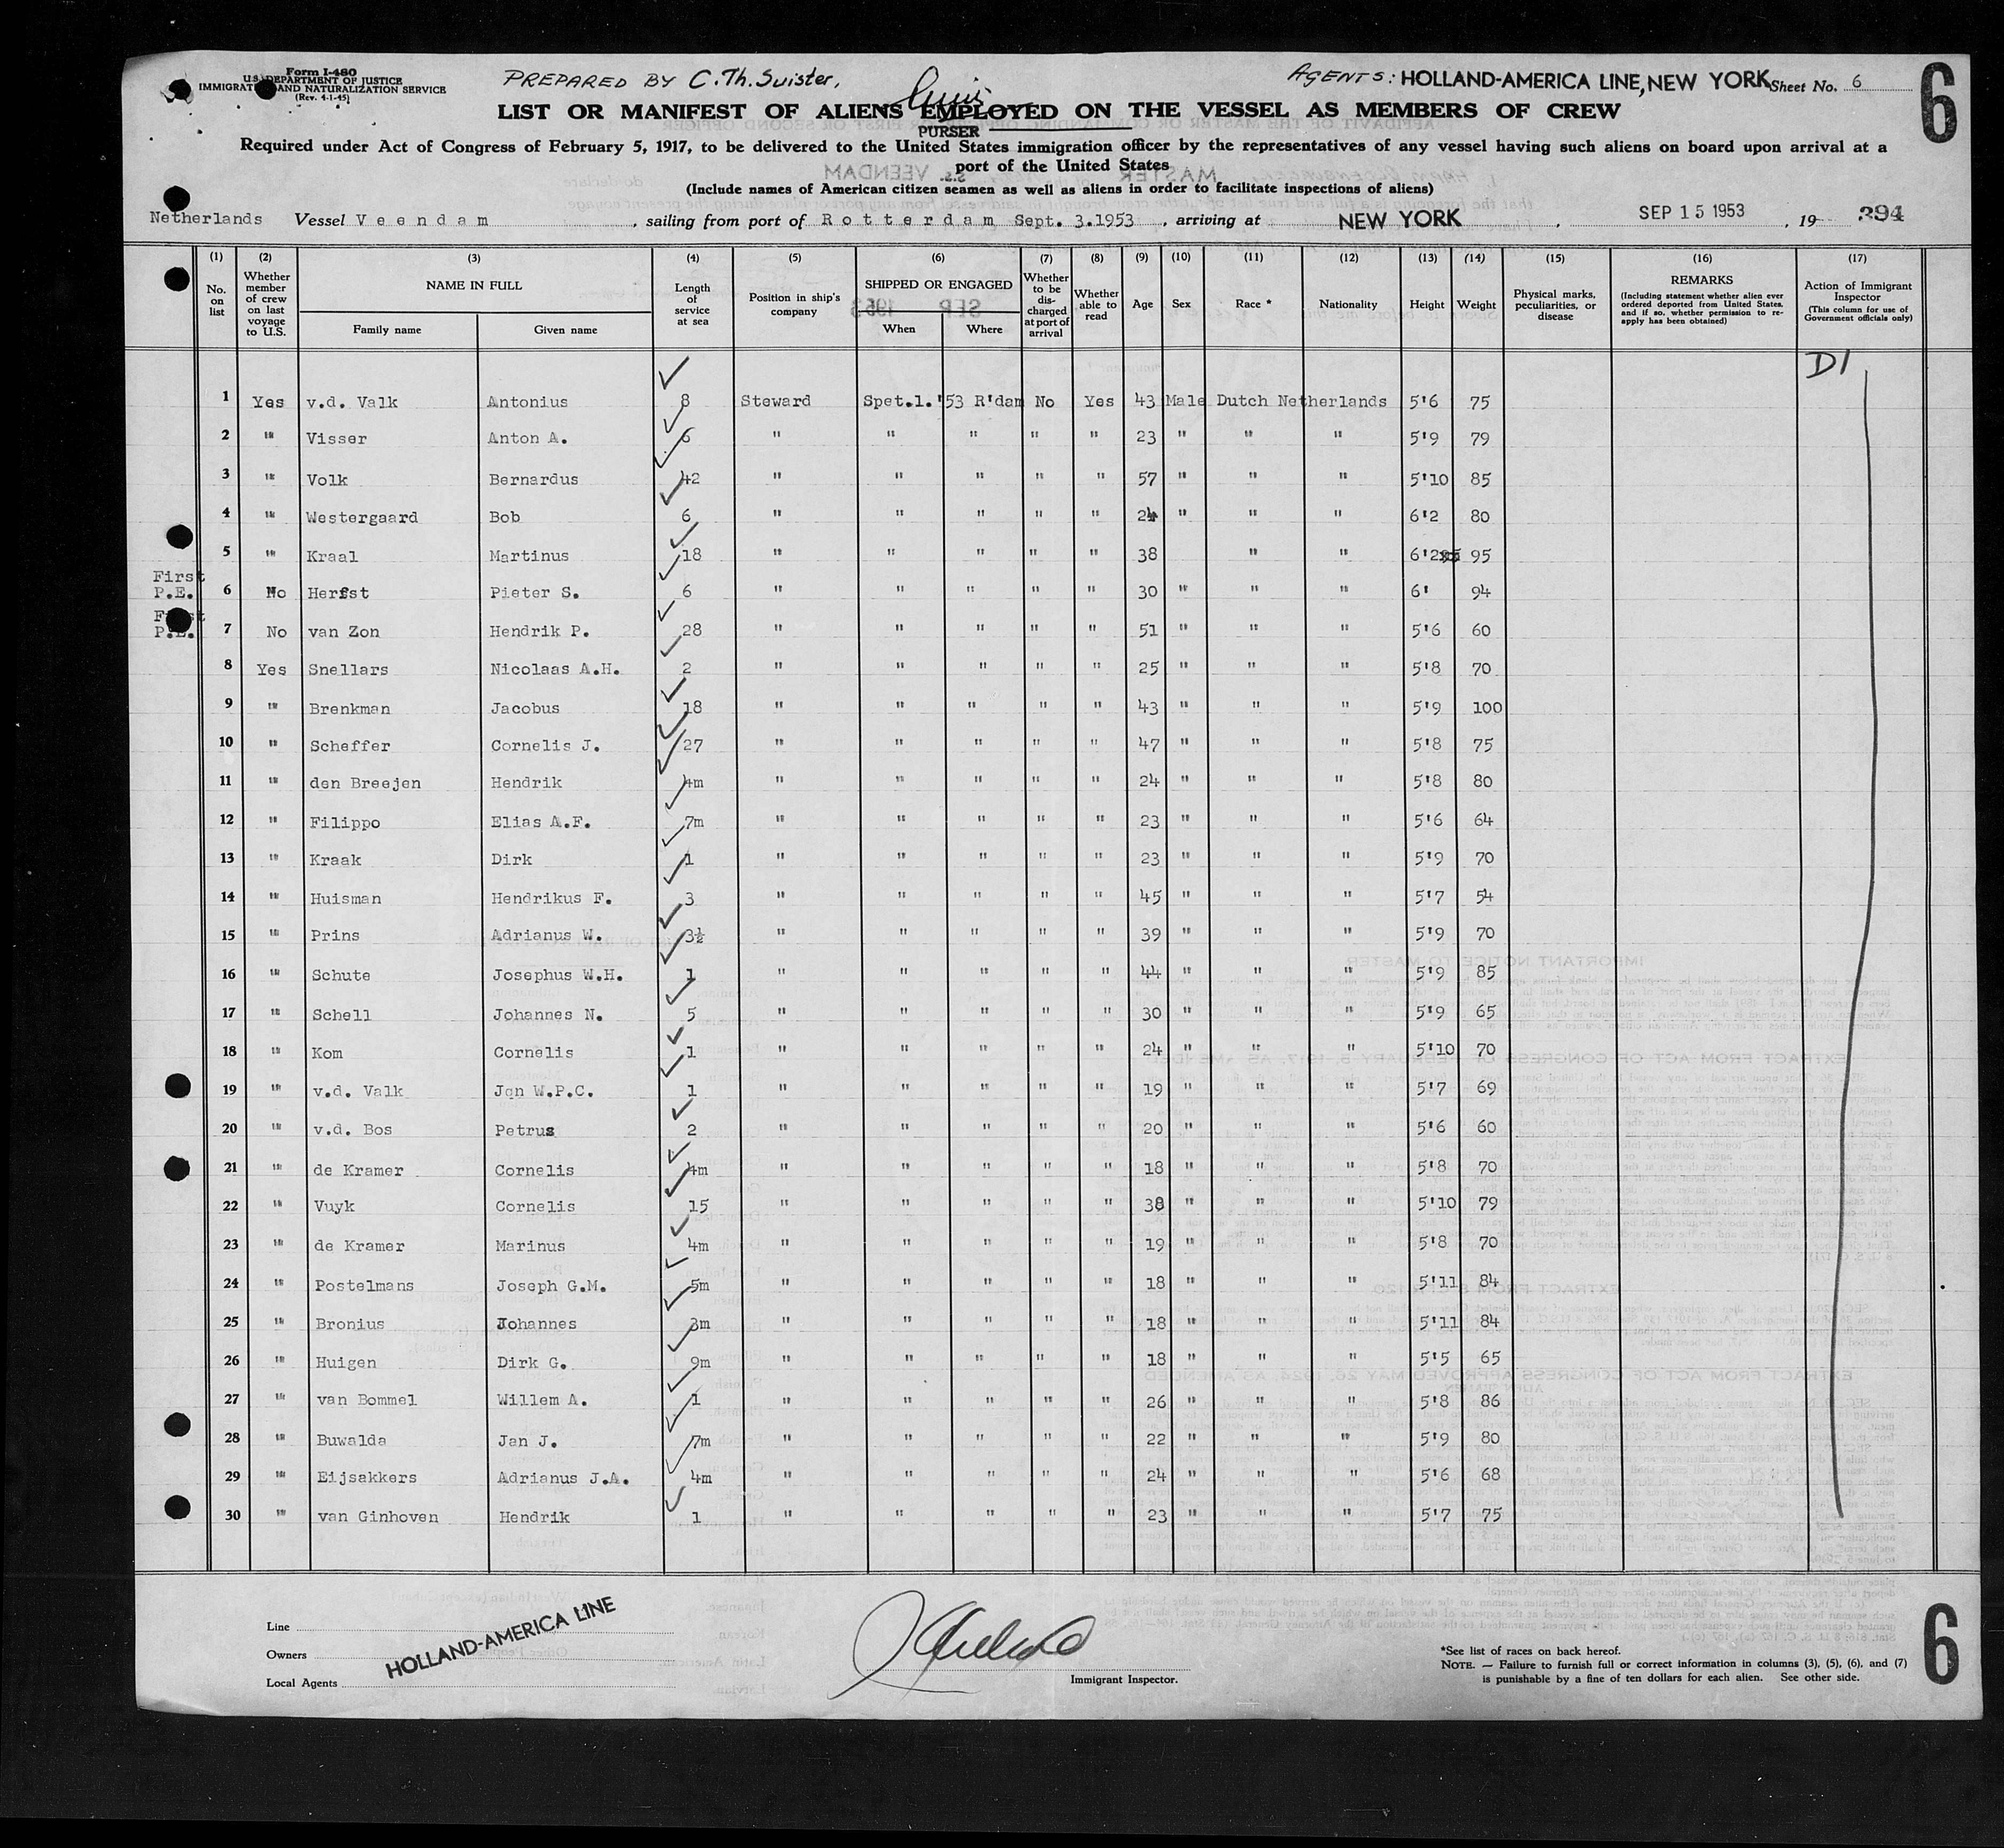 Form I-480
U.S. DEPARTMENT OF JUSTICE
IMMIGRATION AND NATURALIZATION SERVICE
(Rev. 4-1-45)
PREPARED BY C.Th.Suister,
PURSER
AGENTS: HOLLAND-AMERICA LINE, NEW YORK Sheet No. 6
6
LIST OR MANIFEST OF ALIENS EMPLOYED ON THE VESSEL AS MEMBERS OF CREW
Required under Act of Congress of February 5, 1917, to be delivered to the United States immigration officer by the representatives of any vessel having such aliens on board upon arrival at a
port of the United States
(Include names of American citizen seamen as well as aliens in order to facilitate inspections of aliens)
Netherlands Vessel Veendam, sailing from port of Rotterdam Sept. 3.1953, arriving at NEW YORK, SEP 15 1953, 19 394
(1) (2) (3) (4) (5) (6) (7) (8) (9) (10) (11) (12) (13) (14) (15) (16) (17)
No. on list
Whether member of crew on last voyage to U.S.
NAME IN FULL
Family name Given name
Length of service at sea
Position in ship's company
SHIPPED OR ENGAGED
When Where
Whether to be discharged at port of arrival
Whether able to read
Age Sex Race * Nationality Height Weight
Physical marks, peculiarities, or disease
REMARKS
(Including statement whether alien ever ordered deported from United States, and if so, whether permission to re-apply has been obtained)
Action of Immigrant Inspector
(This column for use of Government officials only)
D1
1 Yes v.d. Valk Antonius 8 Steward Spet.1.'53 R'dam No Yes 43 Male Dutch Netherlands 5'6 75
2 " Visser Anton A. 6 " " " " " 23 " " " 5'9 79
3 " Volk Bernardus 42 " " " " " 57 " " " 5'10 85
4 " Westergaard Bob 6 " " " " " 24 " " " 6'2 80
5 " Kraal Martinus 18 " " " " " 38 " " 6'2 95
First P.E. 6 No Herfst Pieter S. 6 " " " " " 30 " " " 6' 94
First P.E. 7 No van Zon Hendrik P. 28 " " " " " 51 " " " 5'6 60
8 Yes Snellars Nicolaas A.H. 2 " " " " " 25 " " " 5'8 70
9 " Brenkman Jacobus 18 " " " " " 43 " " " 5'9 100
10 " Scheffer Cornelis J. 27 " " " " " 47 " " " 5'8 75
11 " den Breejen Hendrik 4m " " " " " 24 " " " 5'8 80
12 " Filippo Elias A.F. 7m " " " " " 23 " " " 5'6 64
13 " Kraak Dirk 1 " " " " " 23 " " " 5'9 70
14 " Huisman Hendrikus F. 3 " " " " " 45 " " " 5'7 54
15 " Prins Adrianus W. 3½ " " " " " 39 " " " 5'9 70
16 " Schute Josephus W.H. 1 " " " " " 44 " " " 5'9 85
17 " Schell Johannes N. 5 " " " " " 30 " " " 5'9 65
18 " Kom Cornelis 1 " " " " " 24 " " " 5'10 70
19 " v.d. Valk Jan W.P.C. 1 " " " " " 19 " " " 5'7 69
20 " v.d. Bos Petrus 2 " " " " " 20 " " " 5'6 60
21 " de Kramer Cornelis 4m " " " " " 18 " " " 5'8 70
22 " Vuyk Cornelis 15 " " " " " 38 " " " 5'10 79
23 " de Kramer Marinus 4m " " " " " 19 " " " 5'8 70
24 " Postelmans Joseph G.M. 5m " " " " " 18 " " " 5'11 84
25 " Bronius Johannes 3m " " " " " 18 " " " 5'11 84
26 " Huigen Dirk G. 9m " " " " " 18 " " " 5'5 65
27 " van Bommel Willem A. 1 " " " " " 26 " " " 5'8 86
28 " Buwalda Jan J. 7m " " " " " 22 " " " 5'9 80
29 " Eijsakkers Adrianus J.A. 4m " " " " " 24 " " " 5'6 68
30 " van Ginhoven Hendrik 1 " " " " " 23 " " " 5'7 75
Line
Owners HOLLAND-AMERICA LINE
Local Agents
Immigrant Inspector.
*See list of races on back hereof.
NOTE. — Failure to furnish full or correct information in columns (3), (5), (6), and (7)
is punishable by a fine of ten dollars for each alien. See other side.
6